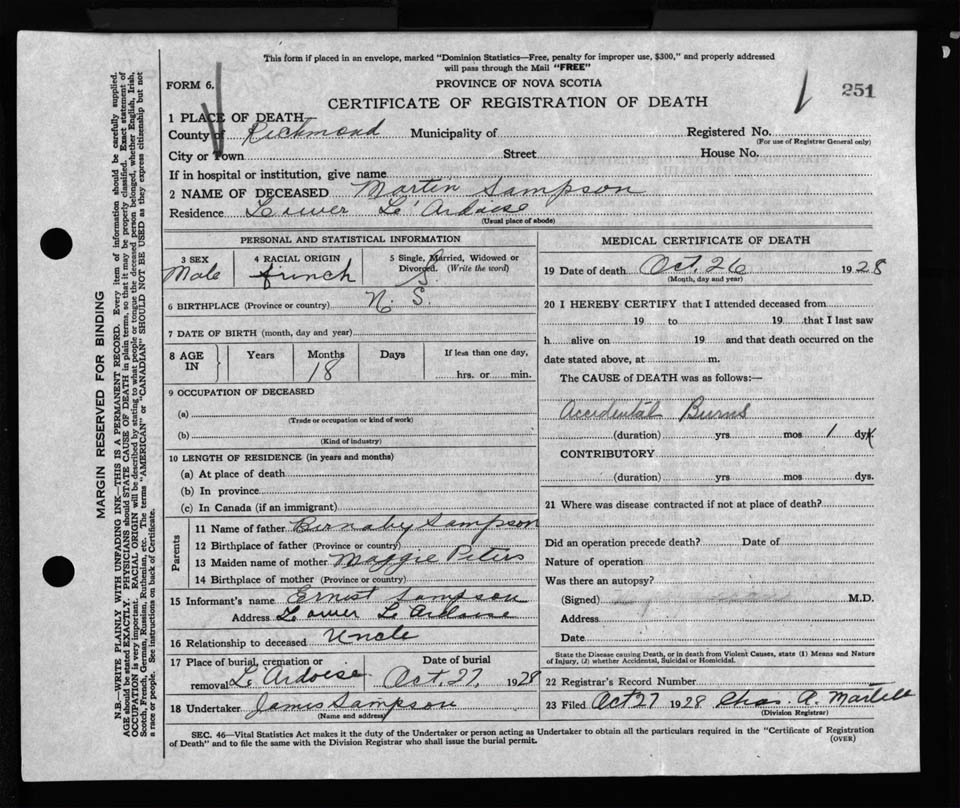 This form if placed in an envelope, marked "Dominion Statistics—Free, penalty for improper use, $300," and properly addressed
will pass through the Mail "FREE"
FORM 6.
PROVINCE OF NOVA SCOTIA
251
CERTIFICATE OF REGISTRATION OF DEATH
1 PLACE OF DEATH
County of Richmond Municipality of Registered No.
(For use of Registrar General only)
City or Town Street House No.
If in hospital or institution, give name
2 NAME OF DECEASED Martin Sampson
Residence Lower L'Ardoise
(Usual place of abode)
PERSONAL AND STATISTICAL INFORMATION
3 SEX 4 RACIAL ORIGIN 5 Single, Married, Widowed or
Divorced. (Write the word)
Male french S.
6 BIRTHPLACE (Province or country) N. S.
7 DATE OF BIRTH (month, day and year)
8 AGE IN Years Months Days If less than one day,
18 hrs. or min.
9 OCCUPATION OF DECEASED
(a)
(Trade or occupation or kind of work)
(b)
(Kind of industry)
10 LENGTH OF RESIDENCE (in years and months)
(a) At place of death
(b) In province
(c) In Canada (if an immigrant)
Parents
11 Name of father Burnaby Sampson
12 Birthplace of father (Province or country)
13 Maiden name of mother Maggie Peters
14 Birthplace of mother (Province or country)
15 Informant's name Ernest Sampson
Address Lower L'Ardoise
16 Relationship to deceased Uncle
17 Place of burial, cremation or Date of burial
removal L'Ardoise Oct. 27, 1928
18 Undertaker James Sampson
(Name and address)
MEDICAL CERTIFICATE OF DEATH
19 Date of death Oct. 26 1928
(Month, day and year)
20 I HEREBY CERTIFY that I attended deceased from
19 to 19 that I last saw
h alive on 19 and that death occurred on the
date stated above, at m.
The CAUSE of DEATH was as follows:—
Accidental Burns
(duration) yrs mos 1 dys
CONTRIBUTORY
(duration) yrs mos dys.
21 Where was disease contracted if not at place of death?
Did an operation precede death? Date of
Nature of operation
Was there an autopsy?
(Signed) M.D.
Address
Date
State the Disease causing Death, or in death from Violent Causes, state (1) Means and Nature
of Injury, (2) whether Accidental, Suicidal or Homicidal.
22 Registrar's Record Number
23 Filed Oct 27 1928 Chas. A. Martell
(Division Registrar)
SEC. 46—Vital Statistics Act makes it the duty of the Undertaker or person acting as Undertaker to obtain all the particulars required in the "Certificate of Registration
of Death" and to file the same with the Division Registrar who shall issue the burial permit.
(OVER)
MARGIN RESERVED FOR BINDING
N.B.—WRITE PLAINLY WITH UNFADING INK—THIS IS A PERMANENT RECORD. Every item of information should be carefully supplied.
AGE should be stated EXACTLY. PHYSICIANS should STATE CAUSE OF DEATH in plain terms, so that it may be properly classified. Exact statement of
OCCUPATION is very important. RACIAL ORIGIN will be described by stating to what people or tongue the deceased person belonged, whether English, Irish,
Scotch, French, German, Russian, Ruthenian, etc. The terms "AMERICAN" or "CANADIAN" SHOULD NOT BE USED as they express citizenship but not
a race or people. See instructions on back of Certificate.